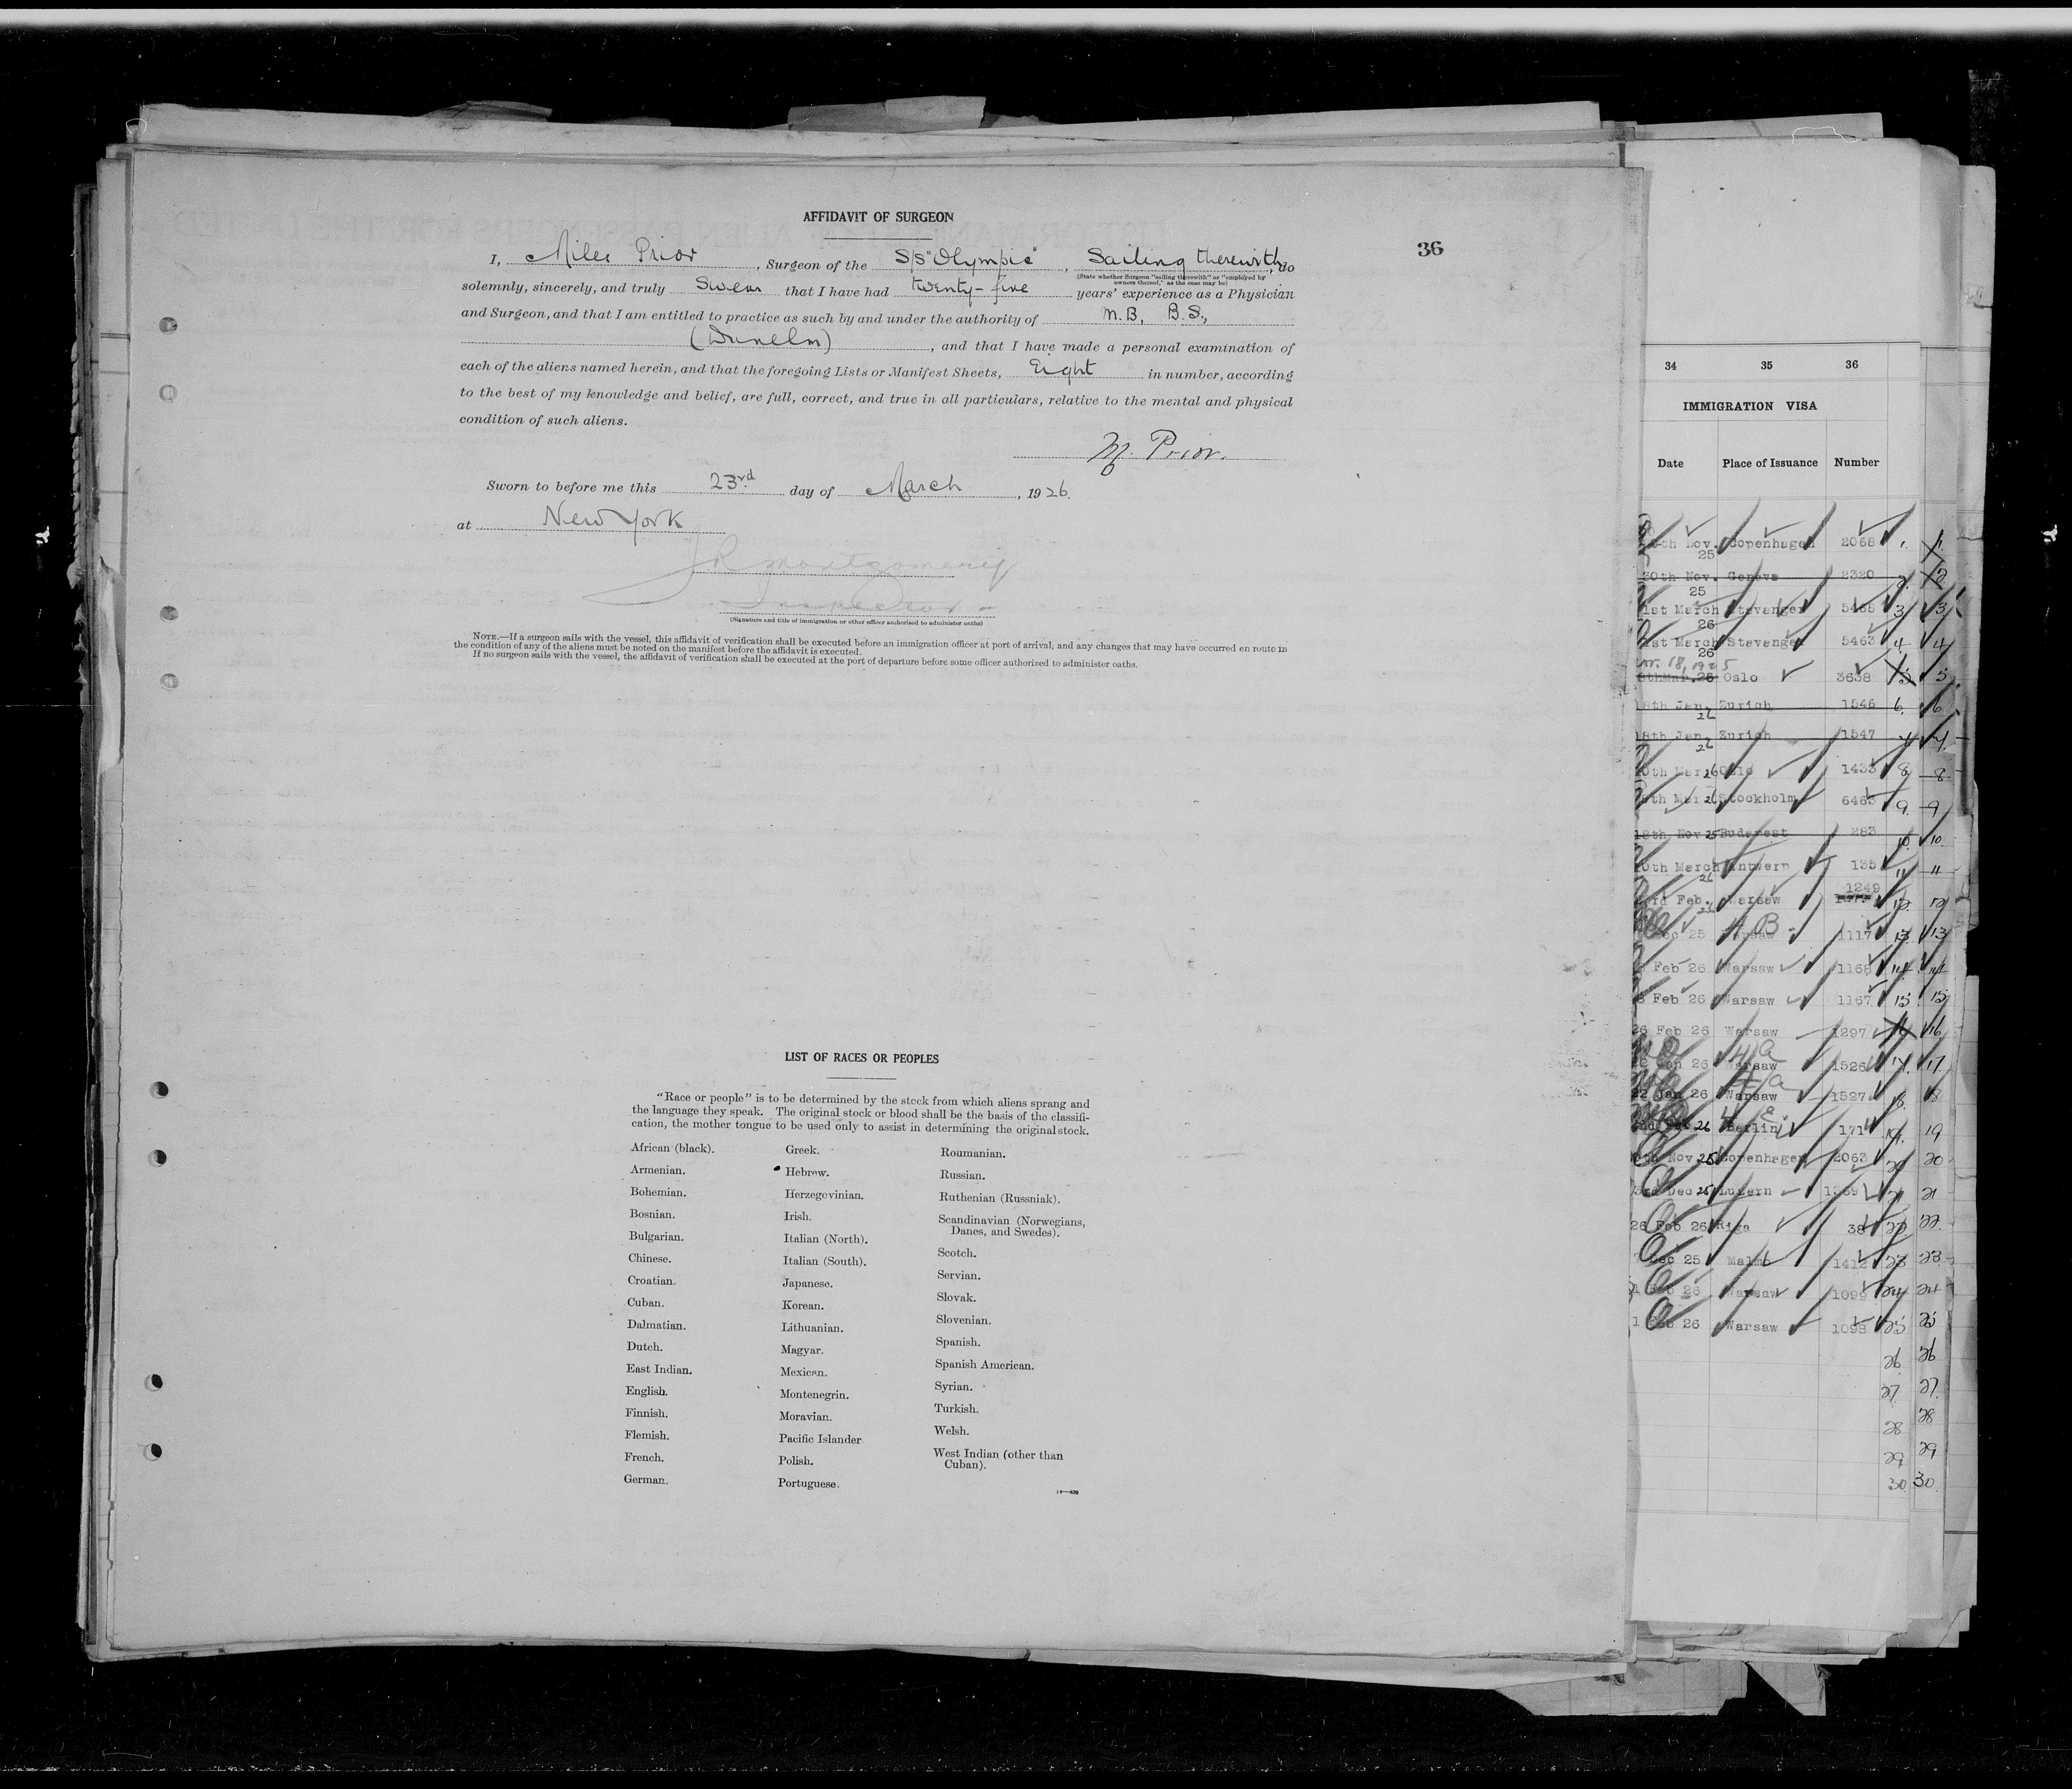 AFFIDAVIT OF SURGEON
36
I, Miles Prior, Surgeon of the S/S "Olympic", Sailing therewith, do
(State whether Surgeon "sailing therewith" or "employed by
owners thereof," as the case may be)
solemnly, sincerely, and truly Swear that I have had twenty-five years' experience as a Physician
and Surgeon, and that I am entitled to practice as such by and under the authority of M.B, B.S.,
(Dunelm), and that I have made a personal examination of
each of the aliens named herein, and that the foregoing Lists or Manifest Sheets, Eight in number, according
to the best of my knowledge and belief, are full, correct, and true in all particulars, relative to the mental and physical
condition of such aliens.
M. Prior.
Sworn to before me this 23rd day of March, 1926.
at New York
JR Montgomery
Inspector
(Signature and title of immigration or other officer authorized to administer oaths)
NOTE.—If a surgeon sails with the vessel, this affidavit of verification shall be executed before an immigration officer at port of arrival, and any changes that may have occurred en route in
the condition of any of the aliens must be noted on the manifest before the affidavit is executed.
If no surgeon sails with the vessel, the affidavit of verification shall be executed at the port of departure before some officer authorized to administer oaths.
LIST OF RACES OR PEOPLES
"Race or people" is to be determined by the stock from which aliens sprang and
the language they speak. The original stock or blood shall be the basis of the classifi-
cation, the mother tongue to be used only to assist in determining the original stock.
African (black).
Armenian.
Bohemian.
Bosnian.
Bulgarian.
Chinese.
Croatian.
Cuban.
Dalmatian.
Dutch.
East Indian.
English.
Finnish.
Flemish.
French.
German.
Greek.
Hebrew.
Herzegovinian.
Irish.
Italian (North).
Italian (South).
Japanese.
Korean.
Lithuanian.
Magyar.
Mexican.
Montenegrin.
Moravian.
Pacific Islander
Polish.
Portuguese.
Roumanian.
Russian.
Ruthenian (Russniak).
Scandinavian (Norwegians,
Danes, and Swedes).
Scotch.
Servian.
Slovak.
Slovenian.
Spanish.
Spanish American.
Syrian.
Turkish.
Welsh.
West Indian (other than
Cuban).
34 35 36
IMMIGRATION VISA
Date Place of Issuance Number
Nov. 25 Copenhagen 2068 1. 1.
30th Nov. 25 Geneva 2320 2. 2
1st March 26 Stavanger 5458 3 3
1st March 26 Stavanger 5463 4 4
18, 1925
8thMar.26 Oslo 3638 5 5
18th Jan. 26 Zurich 1546 6. 6
18th Jan. 26 Zurich 1547 7 7.
Mar 26 Oslo 1433 8 8
Mar 26 Stockholm 6463 9. 9
18th Nov 25 Budapest 283 10 10.
10th March 26 Antwerp 135 11 11
1249
3rd Feb. 26 Warsaw 12. 12
Dec 25 Warsaw 1117 13. 13
Feb 26 Warsaw 1168 14 14
Feb 26 Warsaw 1167 15 15
26 Feb 26 Warsaw 1297 16 16.
4 a
26 Warsaw 1526 17. 17.
22 Jan 26 Warsaw 1527 18. 18
26 Berlin 171 19. 19
Nov 25 Copenhagen 2063 20 20
3rd Dec 25 Luzern 1369 21 21
26 Feb 26 Riga 38 22 22.
Dec 25 Malmö 1412 23 23.
26 Warsaw 1099 24 24
1 Feb 26 Warsaw 1098 25 25
26. 26
27. 27.
28 28
29 29
30. 30.